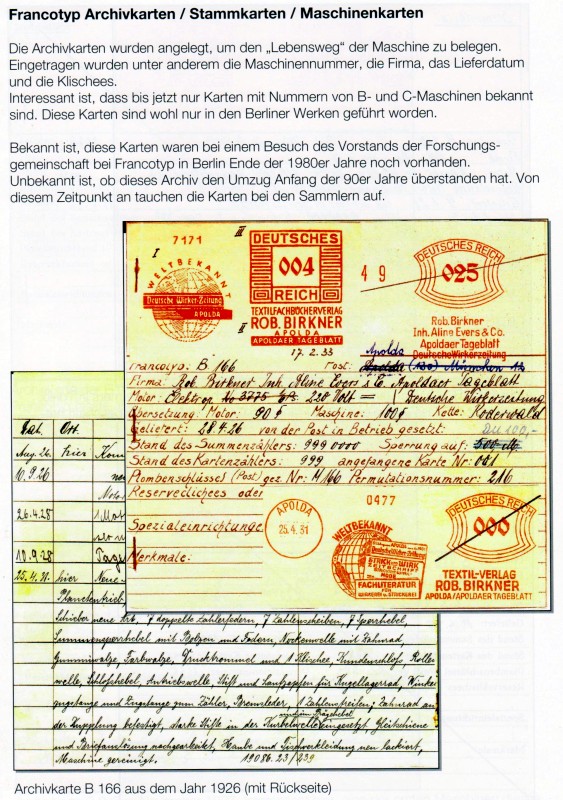 Francotyp Archivkarten / Stammkarten / Maschinenkarten
Die Archivkarten wurden angelegt, um den „Lebensweg" der Maschine zu belegen.
Eingetragen wurden unter anderem die Maschinennummer, die Firma, das Lieferdatum
und die Klischees.
Interessant ist, dass bis jetzt nur Karten mit Nummern von B- und C-Maschinen bekannt
sind. Diese Karten sind wohl nur in den Berliner Werken geführt worden.
Bekannt ist, diese Karten waren bei einem Besuch des Vorstands der Forschungs-
gemeinschaft bei Francotyp in Berlin Ende der 1980er Jahre noch vorhanden.
Unbekannt ist, ob dieses Archiv den Umzug Anfang der 90er Jahre überstanden hat. Von
diesem Zeitpunkt an tauchen die Karten bei den Sammlern auf.
I
7171
WELTBEKANNT
Deutsche Wirker-Zeitung
APOLDA
III
DEUTSCHES
004
REICH
II
TEXTILFACHBÜCHERVERLAG
ROB. BIRKNER
APOLDA
APOLDAER TAGEBLATT
17.2.33
49
DEUTSCHES REICH
025
Rob. Birkner
Inh. Aline Evers & Co.
Apoldaer Tageblatt
Deutsche Wirkerzeitung
Francotyp: B 166 Post: Apolda
Firma: Rob Birkner Inh. Aline Evers & Co. Apoldaer Tageblatt
Motor: Elektron No 3775 220 Volt = Deutsche Wirkerzeitung
Übersetzung: Motor: 90 Maschine: 100 Kette: Roderwald
Geliefert: 28.4.26 von der Post in Betrieb gesetzt:
Stand des Summenzählers: 999 0000 Sperrung auf: 500 M.
Stand des Kartenzählers: 999 angefangene Karte Nr: 001
Plombenschlüssel (Post) gez Nr: H/166 Permutationsnummer: 216
Reserveclichees oder
Spezialeinrichtunge
Merkmale:
APOLDA
25.4.31
0477
WELTBEKANNT
Deutsche Wirker-Zeitung
STRICK u. WIRK
ZEITSCHRIFT
MODE
FACHLITERATUR
FÜR
WIRKEREI u. STRICKEREI
DEUTSCHES REICH
000
TEXTIL-VERLAG
ROB. BIRKNER
APOLDA/APOLDAER TAGEBLATT
Dat. Ort.
Aug. 26 hier
10.9.26
26.4.28
10.9.28
25.4.31 hier Neue
Schieber neue Art, 7 doppelte Zahlenfedern, 7 Zahlenscheiben, 7 Sperrhebel,
Summensperrhebel mit Bolzen und Federn, Nockenwelle mit Zahnrad,
Gummiwalze, Farbwalze, Drucktrommel und 1 Klischee, Kundenschloß, Rollen
welle, Schloßhebel, Antriebswelle, Stift und Laufzapfen für Kugellagerrad, Winkel
zugstange und Zugstange zum Zähler, Bremsleder, 2 Zahlenstreifen; Zahnrad an
der Kupplung befestigt, starke Stifte in der Kurbelwelle eingesetzt, Gleitschiene
und Briefauslösung nachgearbeitet, Haube und Tischverkleidung neu lackiert,
Maschine gereinigt. 19086.23/239
Archivkarte B 166 aus dem Jahr 1926 (mit Rückseite)